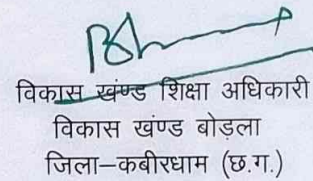 विकास खण्ड शिक्षा अधिकारी
विकास खण्ड बोड़ला
जिला–कबीरधाम (छ.ग.)